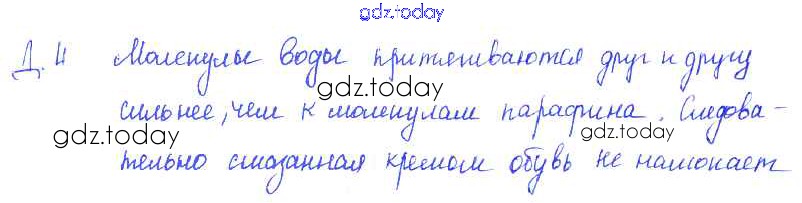 gdz.today
Д. 4 Молекулы воды притягиваются друг к другу
gdz.today
сильнее, чем к молекулам парафина. Следова-
gdz.today gdz.today
тельно смазанная кремом обувь не намокает